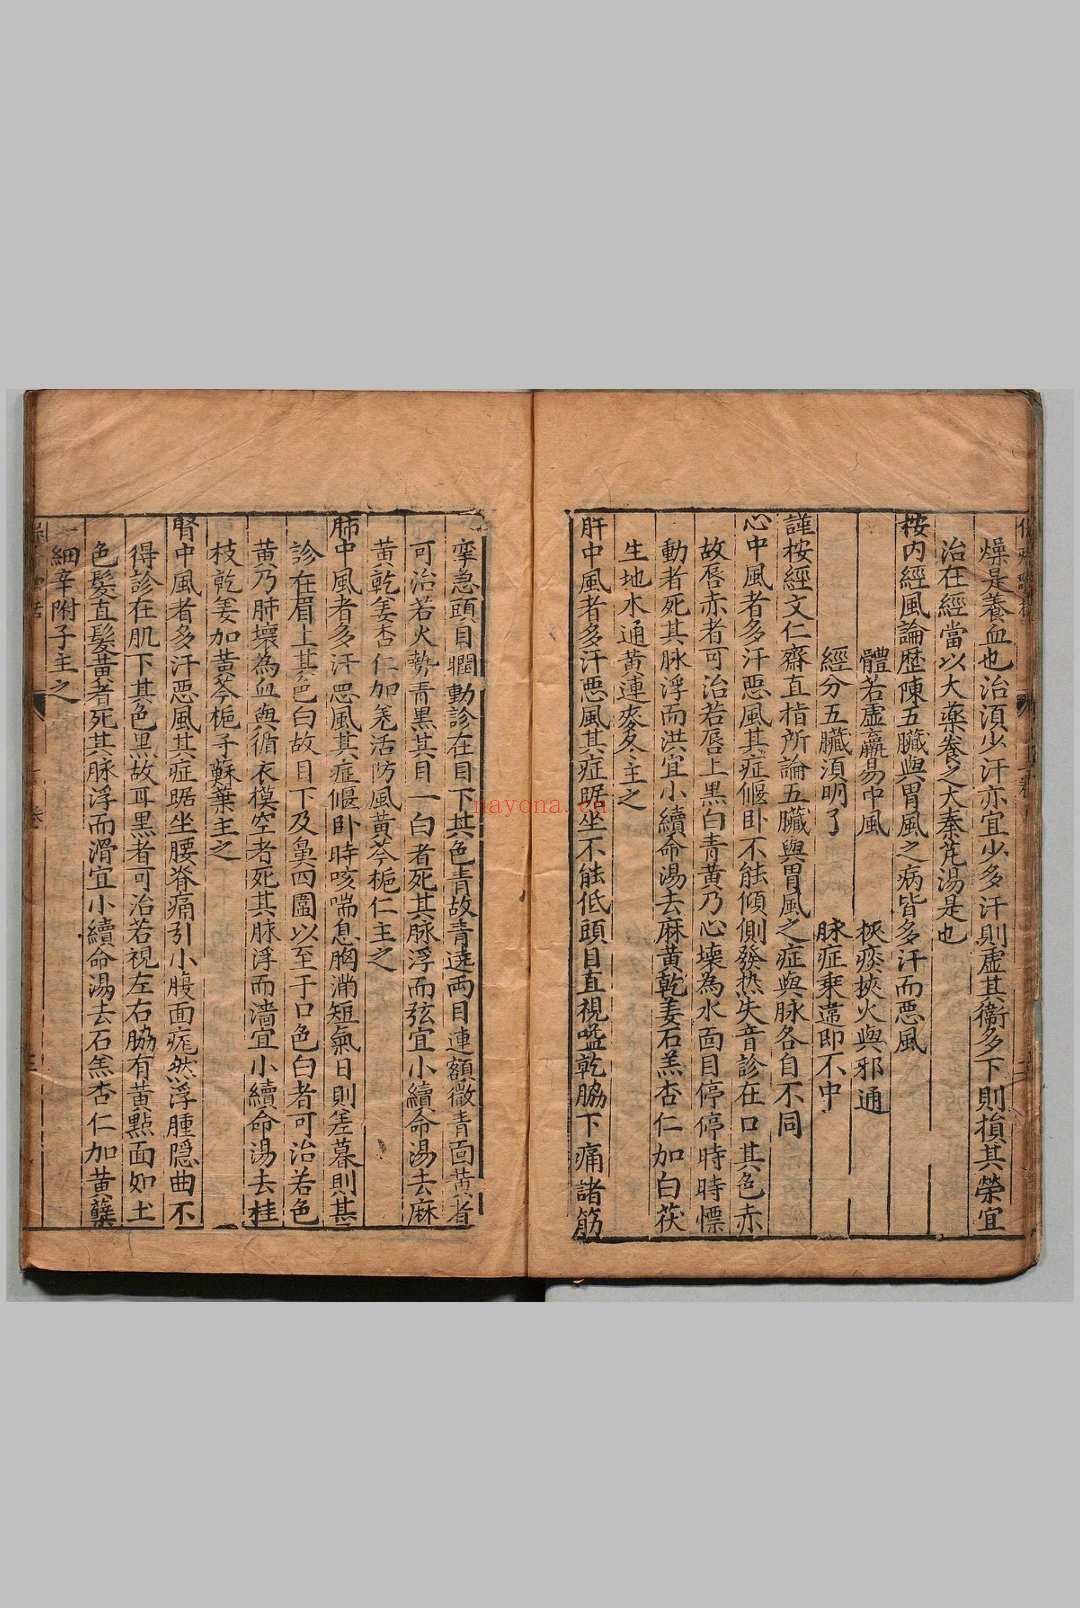 燥是養血也治須少汗亦宜少多汗則虛其衞多下則損其榮宜
治在經當以大藥養之大秦芃湯是也
按内經風論歷陳五臟與胃風之病皆多汗而惡風
體若虛羸易中風 挾痰挾火與邪通
經分五臟須明了 脉症乗違即不中
謹按經文仁齋直指所論五臟與胃風之症與脉各自不同
心中風者多汗惡風其症偃卧不能傾側發热失音診在口其色赤
故唇赤者可治若唇上黑白青黃乃心壞為水面目停停時時慄
動者死其脉浮而洪宜小續命湯去麻黄乾姜石羔杏仁加白茯
生地木通黄連麥冬主之
肝中風者多汗惡風其症踞坐不能低頭目直視嗌乾脇下痛諸筋
攣急頭目瞤動診在目下其色青故青遶兩目連額微青面黄者
可治若火勢青黑其目一白者死其脉浮而弦宜小續命湯去麻
黄乾姜杏仁加羌活防風黄芩梔仁主之
肺中風者多汗惡風其症偃卧時咳喘息胸滿短氣日則差暮則甚
診在眉上其色白故目下及鼻四圍以至于口色白者可治若色
黄乃肺壞為血與循衣模空者死其脉浮而濇宜小續命湯去桂
枝乾姜加黄芩梔子蘇葉主之
腎中風者多汗惡風其症踞坐腰脊痛引小腹面痝然浮腫隠曲不
得診在肌下其色黑故耳黑者可治若視左右脇有黄點面如土
色髮直髮黃者死其脉浮而滑宜小續命湯去石羔杏仁加黄蘗
細辛附子主之
nayona.cn